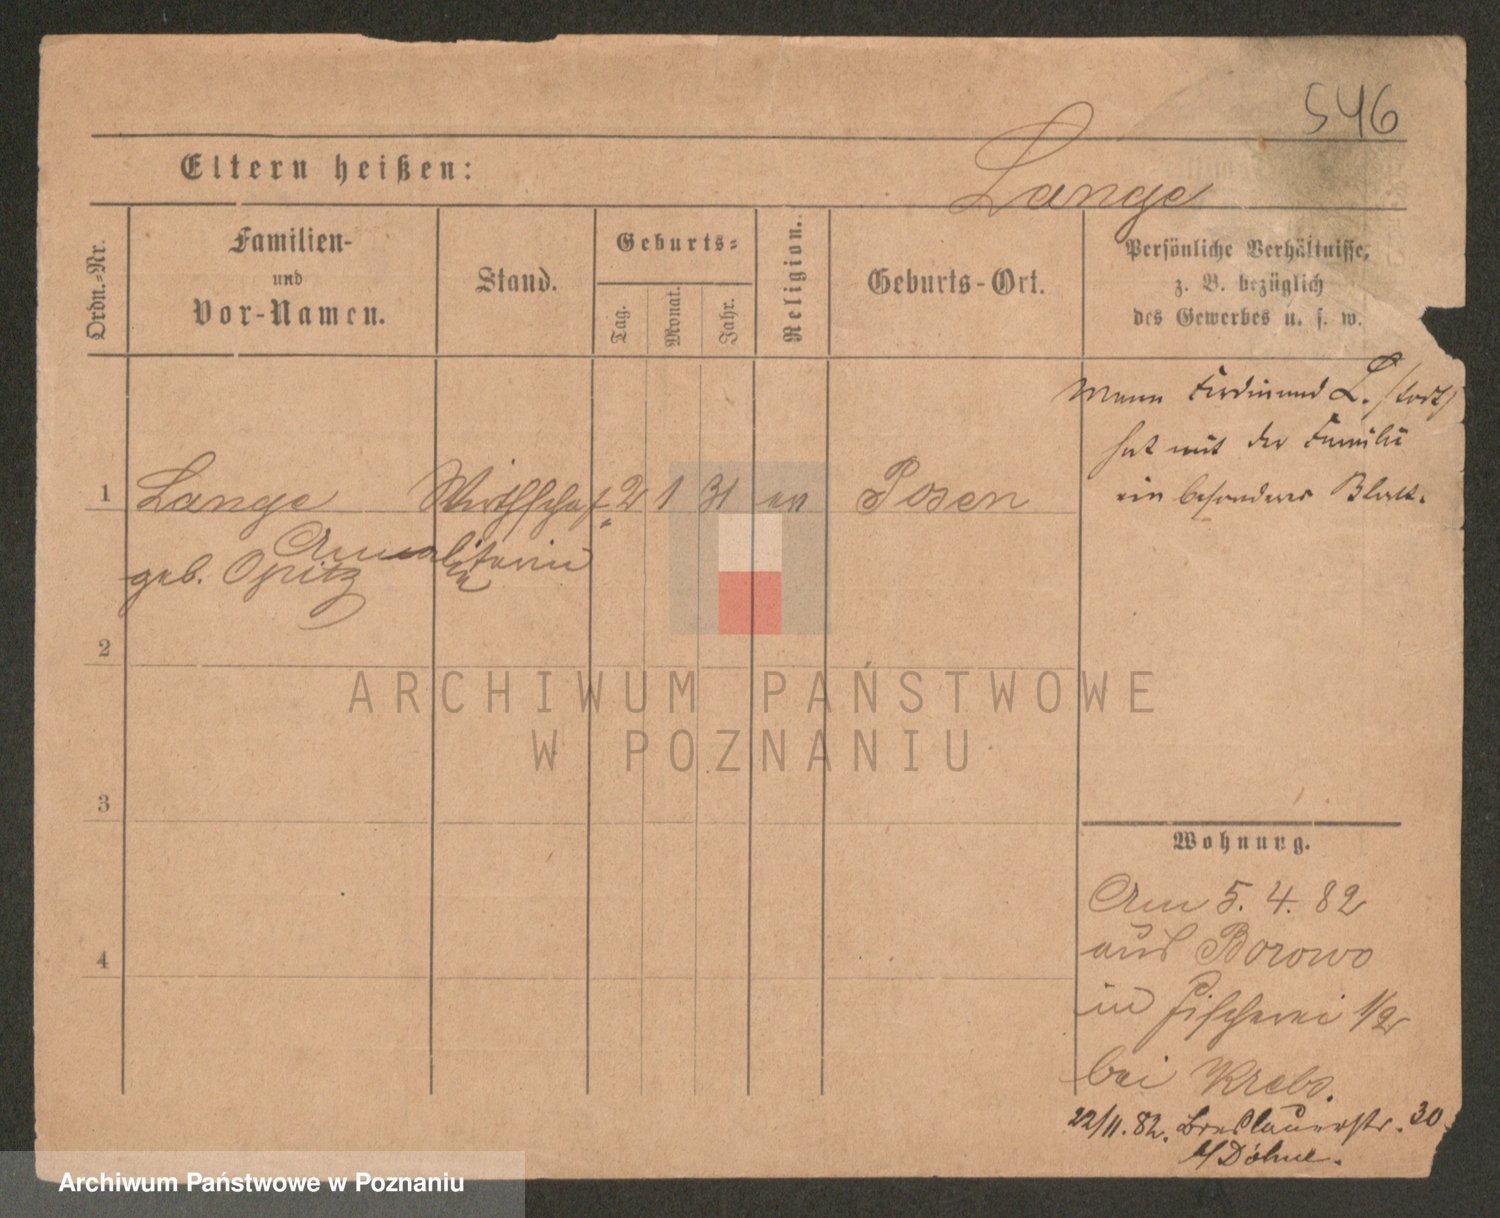 546
Eltern heißen:
Lange
Ordn.-Nr.
Familien-
und
Vor-Namen.
Stand.
Geburts-
Tag.
Monat.
Jahr.
Religion.
Geburts-Ort.
Persönliche Verhältnisse,
z. B. bezüglich
des Gewerbes u. s. w.
Mann Ferdinand L. (todt)
hat mit der Familie
ein besonderes Blatt.
1 Lange Wirthschaf- 2 1 31 ev Posen
Amalie terin
geb. Opitz
2
ARCHIWUM PAŃSTWOWE
W POZNANIU
3
Wohnung.
Am 5. 4. 82
aus Borowo
4
in Fischerei 1/2
bei Krebs.
22/11. 82. Breslauerstr. 30
b/Döhne.
Archiwum Państwowe w Poznaniu